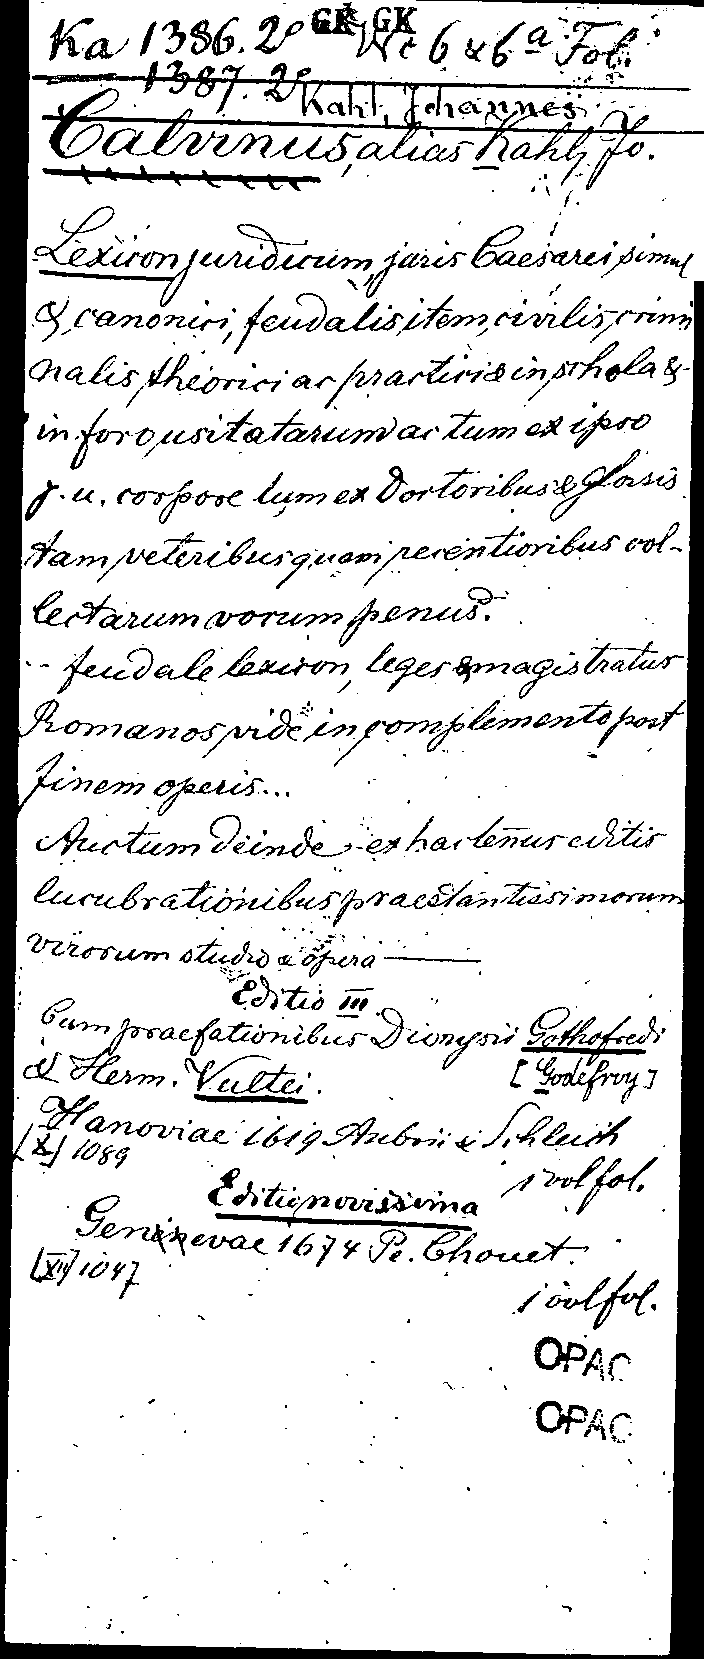 GK GK
Ka 1386. 2° Nc 6 & 6a Fol.
1387. 2°
Kahl, Johannes
Calvinus, alias Kahl, Jo.
Lexicon juridicum, juris Caesarei simul
&, canonici, feudalis item, civilis, crimi
nalis, theorici ac practici & in schola &
in foro usitatarum ac tum ex ipso
j. u. corpore tum ex Doctoribus & glossis
tam veteribus quam recentioribus col-
lectarum vocum penus.
-- feudale lexicon, leges & magistratus
Romanos vide in complemento post
finem operis...
Auctum deinde ex hactenus editis
lucubrationibus praestantissimorum
virorum studio & opera —
Editio III.
Cum praefationibus Dionysii Gothofredi
& Herm. Vultei. [Godefroy]
Hanoviae 1619 Aubrii & Schleich
[X] 1089
1 vol fol.
Editio novissima
Genevae 1674 Pe. Chouet.
[XII] 1047
1 vol fol.
OPAC
OPAC